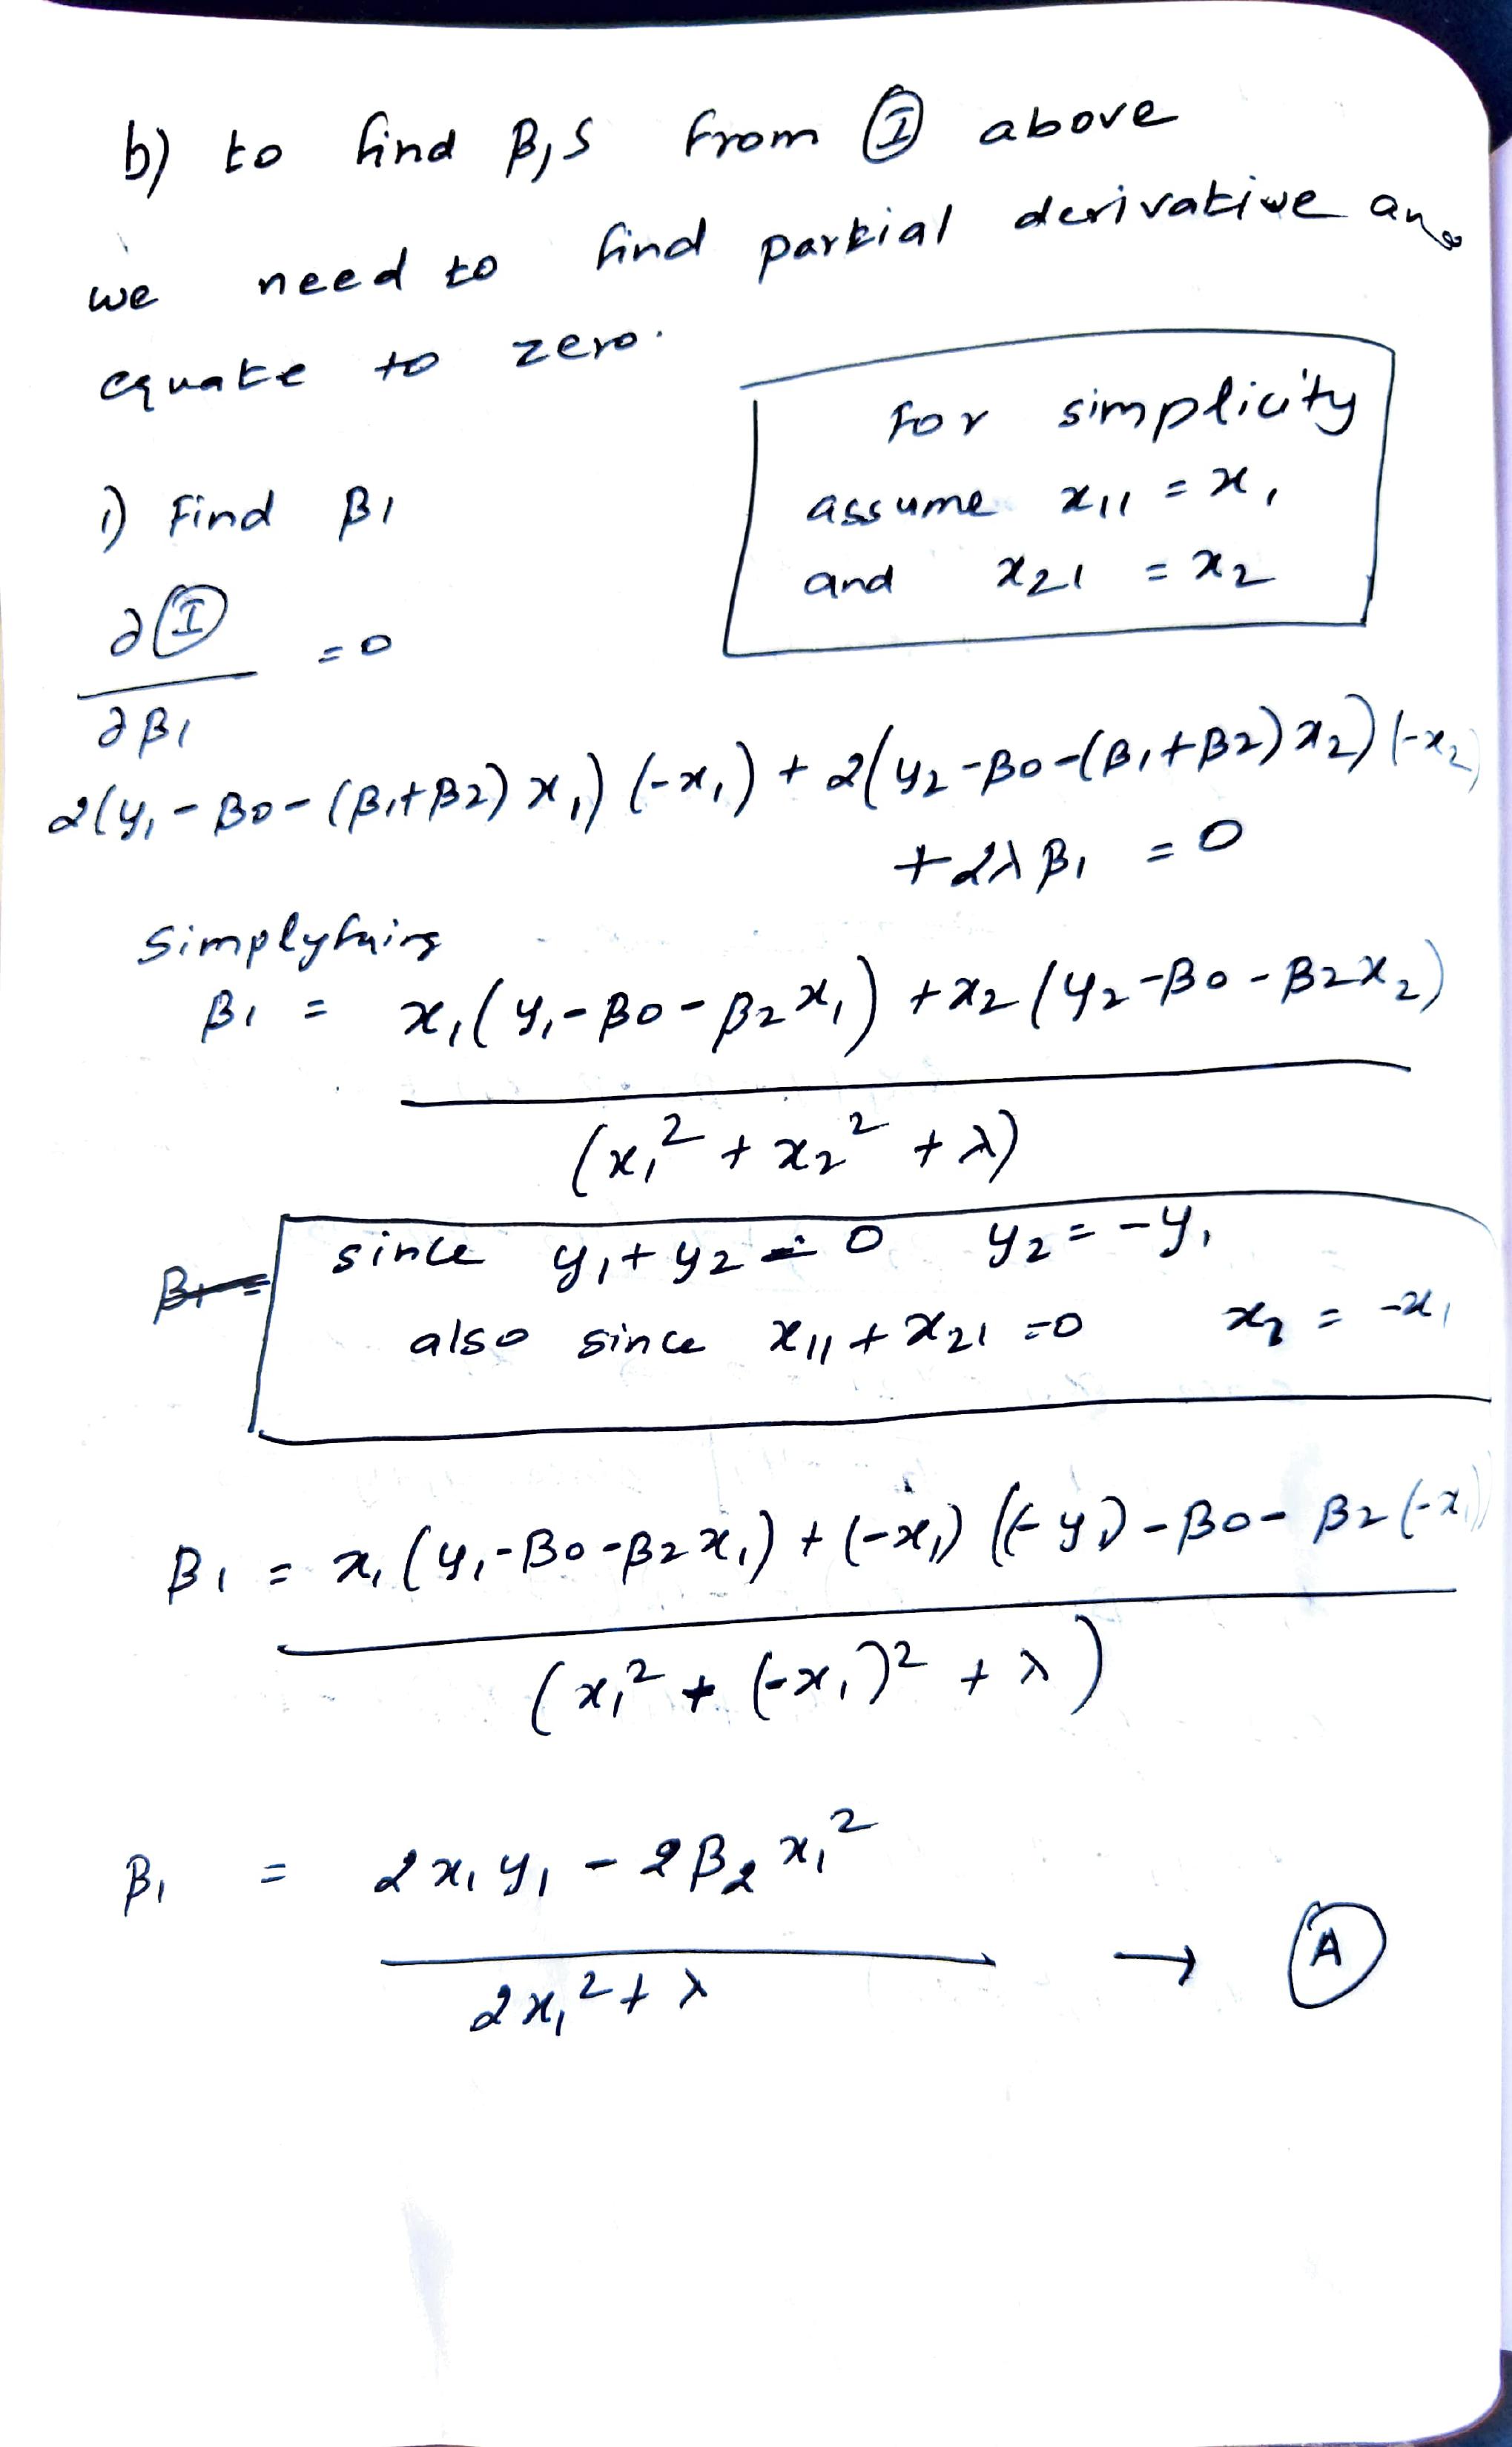 b) to find β,s from Ⓘ above
we need to find partial derivative and
equate to zero.
For simplicity
assume x11 = x1
and x21 = x2
i) Find β1
∂Ⓘ/∂β1 = 0
2(y1 - β0 - (β1+β2) x1) (-x1) + 2(y2 - β0 - (β1+β2) x2) (-x2)
+ 2λ β1 = 0
Simplyfuing
β1 = x1(y1 - β0 - β2x1) + x2(y2 - β0 - β2x2)
(x1² + x2² + λ)
since y1 + y2 = 0 y2 = -y1
also since x11 + x21 = 0 x2 = -x1
β1 = x1(y1 - β0 - β2x1) + (-x1) ((-y1) - β0 - β2(-x1))
(x1² + (-x1)² + λ)
β1 = 2x1y1 - 2β2x1²
2x1² + λ → Ⓐ